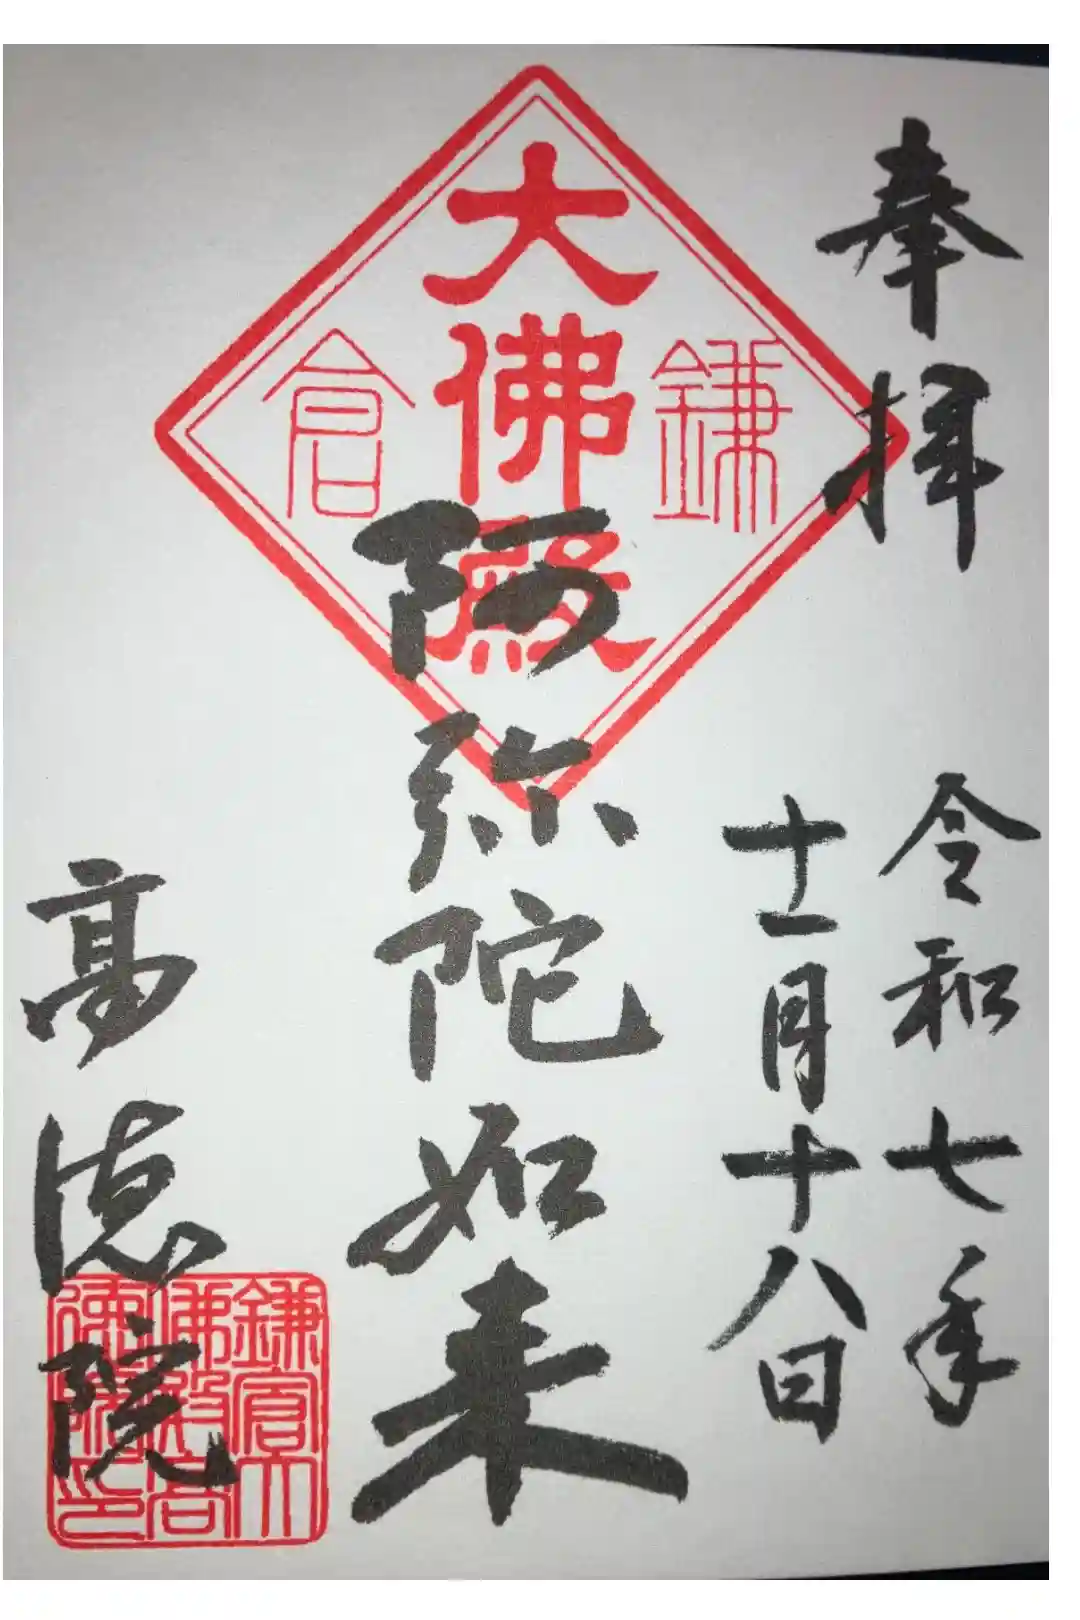 奉拝
令和七年
十一月十八日
鎌倉
大佛殿
阿弥陀如来
高徳院
鎌倉大
佛殿高
徳院印